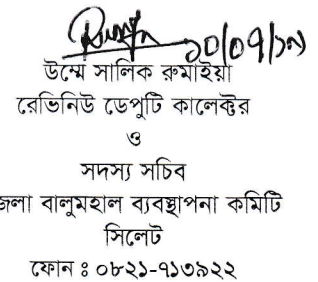 ১০/০৭/১৯
উম্মে সালিক রুমাইয়া
রেভিনিউ ডেপুটি কালেক্টর
ও
সদস্য সচিব
জলা বালুমহাল ব্যবস্থাপনা কমিটি
সিলেট
ফোন ঃ ০৮২১-৭১৩৯২২